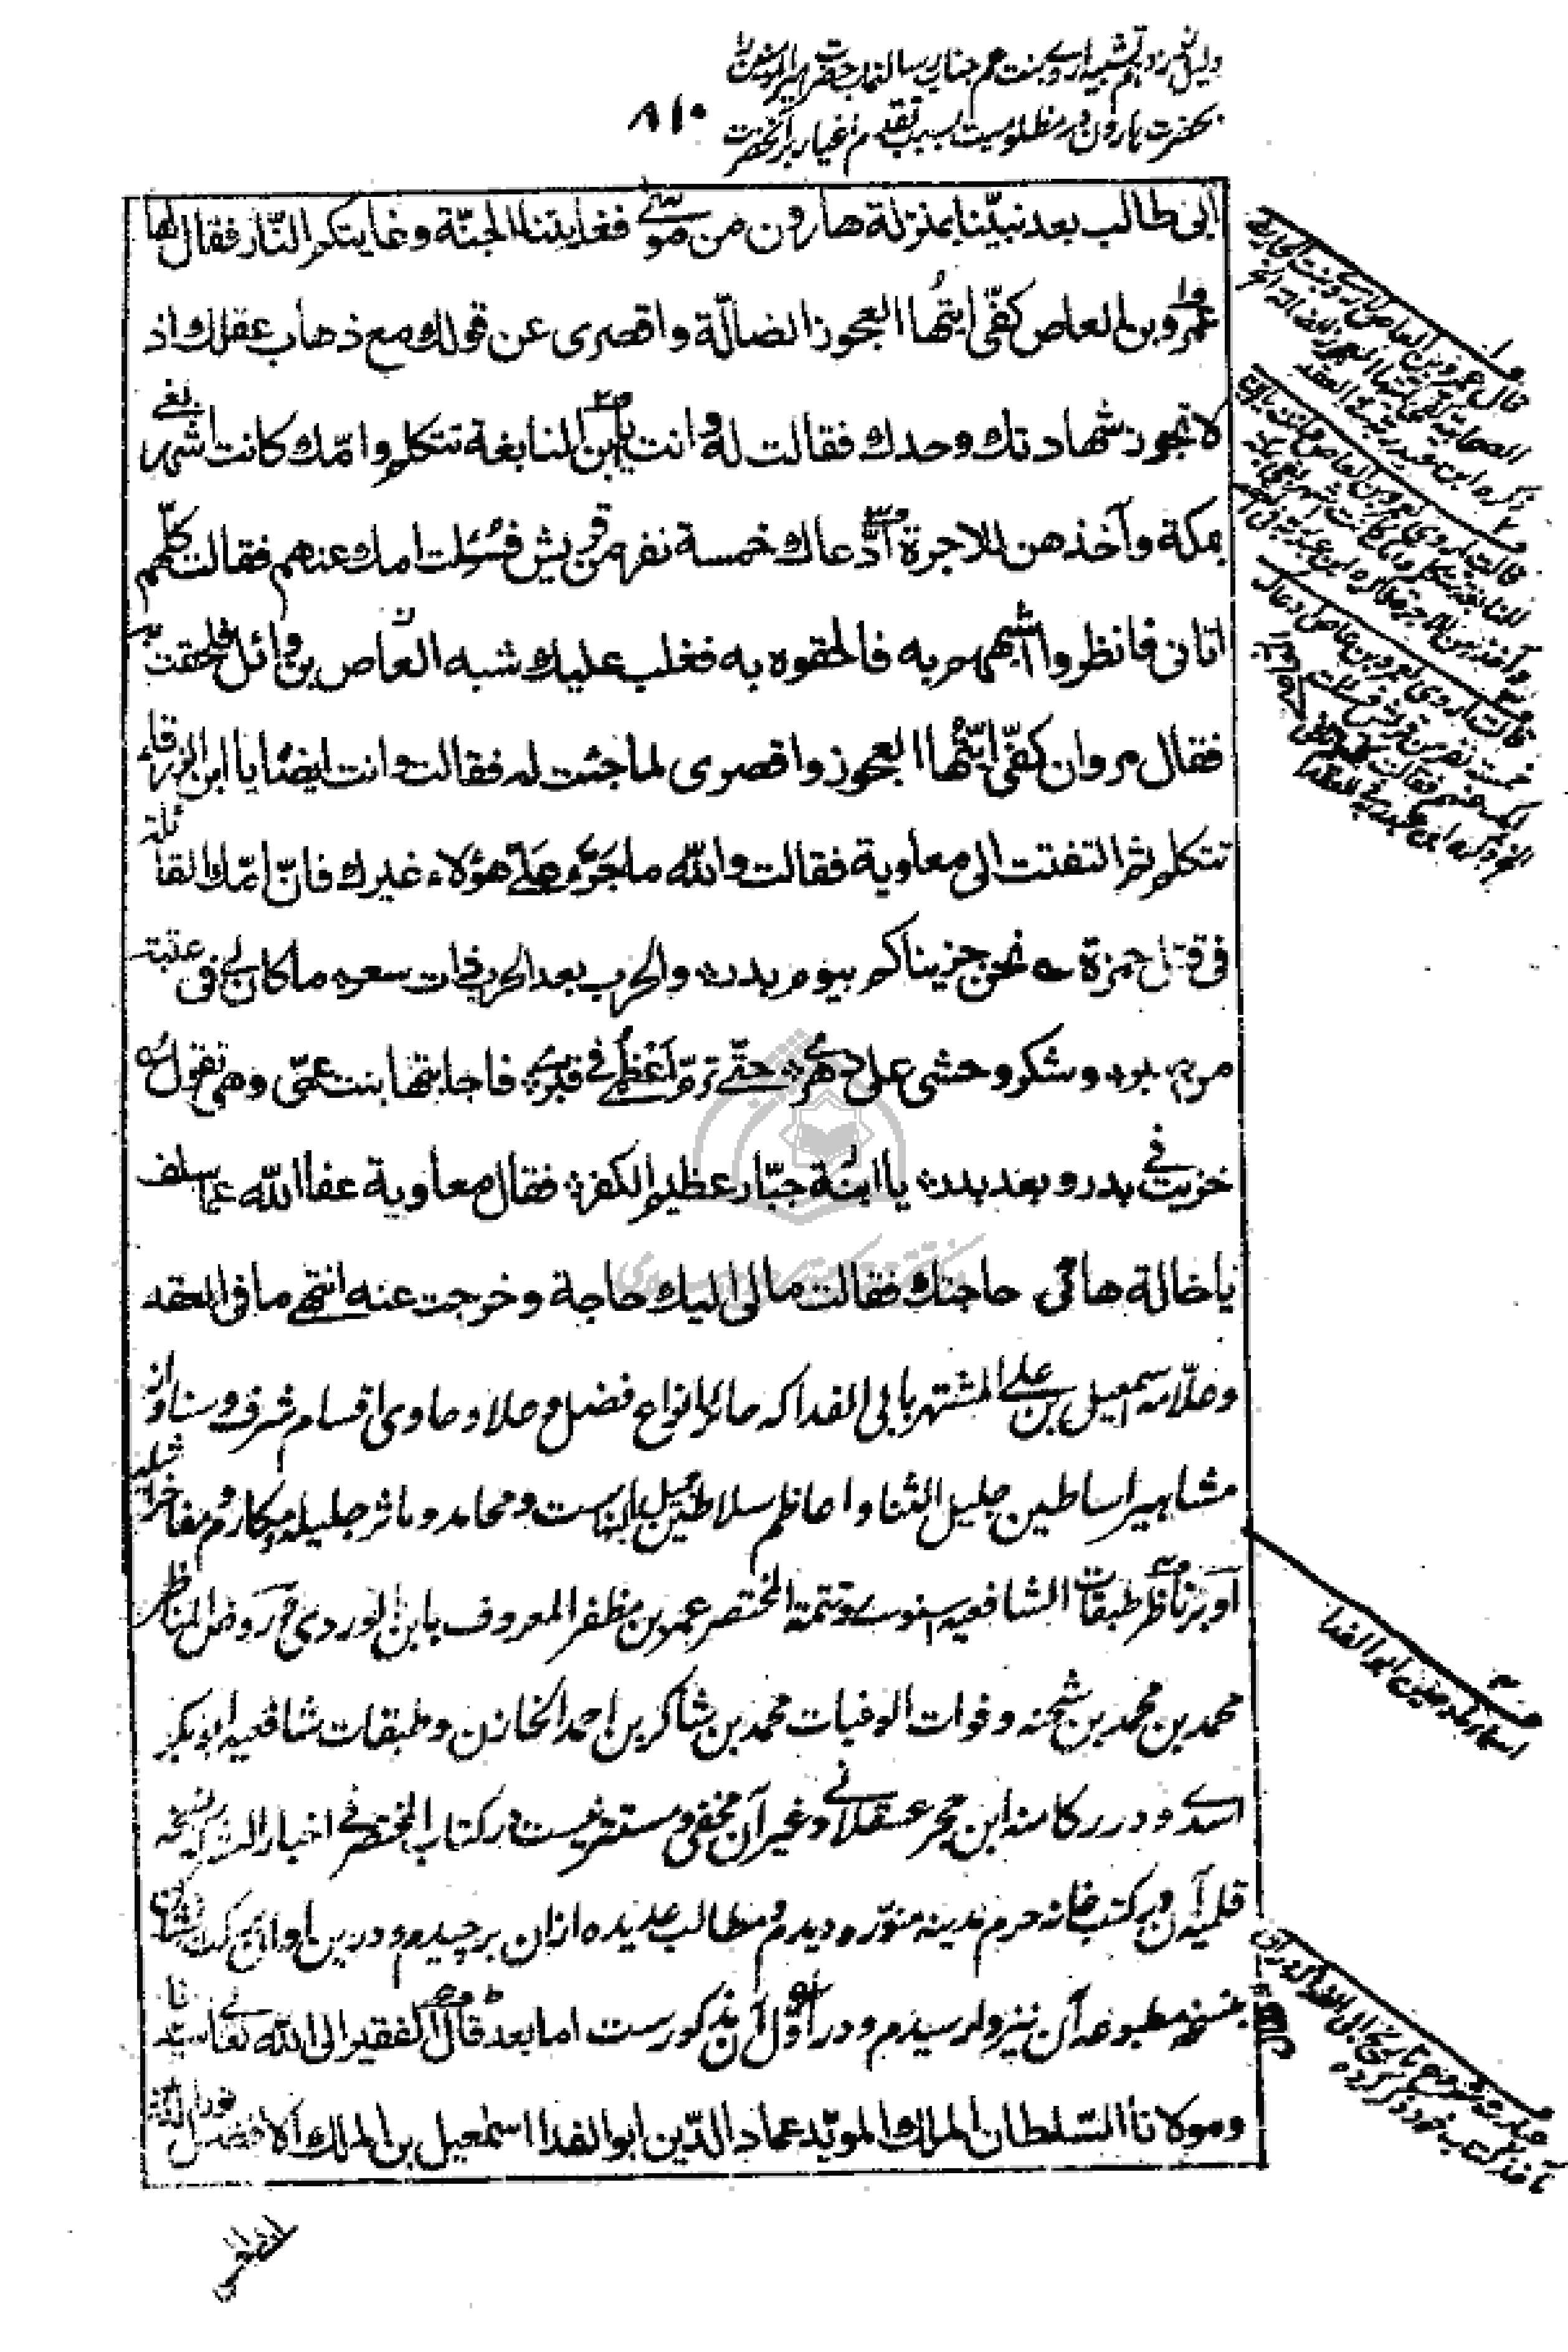 دلیل نوزدهم تشبیه اروی بنت عم جناب رسالتماب حضرت امیرالمومنین را
بحضرت هارون در مظلومیت بسبب تقدم اغیار بر آنحضرت
۸۱۰
ابی طالب بعد نبیّنا بمنزلة هارون من موسی فغایتنا الجنّة وغایتکم النّار فقال لها
عمرو بن العاص کفّی ایتُها العجوز الضالّة واقصری عن قولك مع ذهاب عقلك اذ
لا تجوز شهادتك وحدك فقالت له وانت یا بن النابغة تتکلم وامّك کانت اشهر بغی
بمکة وآخذهن للاجرة ادّعاك خمسة نفر من قریش فسُئلت امك عنهم فقالت کلّهم
اتانی فانظروا اشبههم به فالحقوه به فغلب علیك شبه العاص بن وائل فلحقت به
فقال مروان کفّی ایّتُها العجوز واقصری لما جئت له فقالت وانت ایضًا یا ابن الزرقاء
تتکلم ثم التفتت الی معاویة فقالت والله ما جرّء علیّ هؤلاء غیرك فانّ امّك القائلة
فی قتل حمزة نحن جزیناکم بیوم بدر والحرب بعد الحرب ذات سعر ما کان لی فی عتبة
من صبر وشکر وحشی علی دهری حتّی ترمّ اعْظُمی فی قبری فاجابتها بنت عمّی وهی تقول
خزیت فی بدر وبعد بدر یا ابنة جبّار عظیم الکفر فقال معاویة عفا الله عما سلف
یا خالة هاتی حاجتك فقالت مالی الیك حاجة وخرجت عنه انتهی ما فی العقد
وعلّامه اسمعیل بن علی المشتهر بابی الفدا که حائز انواع فضل و علا و حاوی اقسام شرف و سنا و از
مشاهیر اساطین جلیل الثنا و اعاظم سلاطین جمیل البناست و محامد و مآثر جلیله و مکارم و مفاخر اثیله
او بر ناظر طبقات الشافعیه اسنوی و تتمة المختصر عمر بن مظفر المعروف بابن الوردی و روض المناظر
محمد بن محمد بن شحنه و فوات الوفیات محمد بن شاکر بن احمد الخازن و طبقات شافعیه ابوبکر
اسدی و درر کامنه ابن حجر عسقلانی و غیر آن مخفی و مستتر نیست در کتاب المختصر فی اخبار البشر که نسخه
قلمیه آن در کتب خانه حرم مدینه منوّره دیدم و مطالب عدیده از ان برچیدم و درین اوان برکت نشان
بنسخه مطبوعه آن نیز وارسیدم و در اوّل آن مذکورست اما بعد قال الفقیر الی الله تعالی سیدنا
ومولانا السّلطان الملك المویّد عماد الدّین ابو الفدا اسمٰعیل بن الملك الافضل نور الدین
قال عمرو بن العاص لاروی بنت الحارث
الصحابیة کفی ایتها العجوز الضالة الخ
ذکره ابن عبد ربه فی العقد
قالت اروی لعمرو بن العاص وانت یا بن
النابغة تتکلم وامك کانت اشهر بغی بمکة
وآخذهن للاجرة ذکره ابن عبد ربه فی العقد
قالت اروی لعمرو بن عاص ادعاك
خمسة نفر من قریش فسئلت
امك عنهم فقالت کلهم اتانی
الخ ذکره ابن عبد ربه فی العقد
اسماء مادحین ابو الفدا
عبارت شروع تاریخ ابی الفدا که دران
مآخذ کتاب خود ذکر کرده